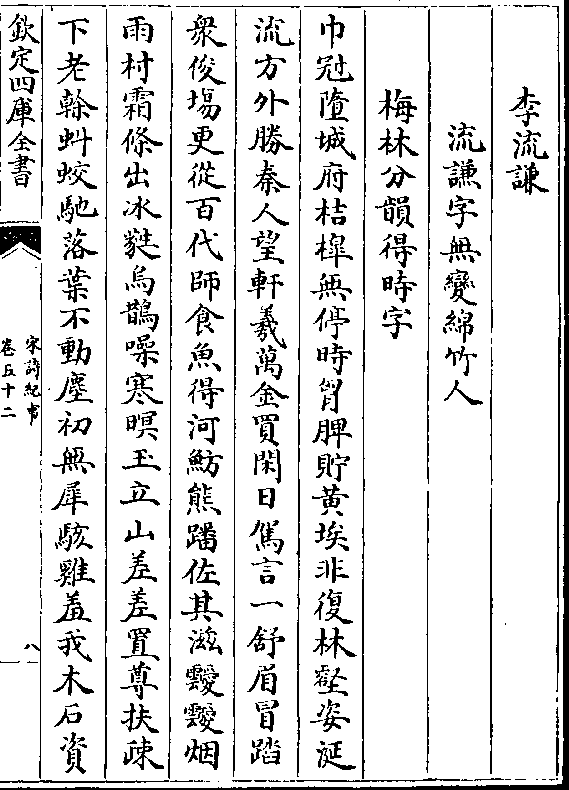 李流謙
流謙字無變綿竹人
梅林分韻得時字
巾冠墮城府桔槔無停時胷脾貯黄埃非復林壑姿涎
流方外勝秦人望軒羲萬金買閑日儁言一舒眉冒踏
衆俊塲更從百代師食魚得河魴熊蹯佐其滋靉靉烟
雨村霜條出冰甤烏鵲噪寒暝玉立山差差置尊扶疎
下老榦虯蛟馳落葉不動塵初無犀駭雞羞我木石資
欽定四庫全書
宋詩紀事
卷五十二
八